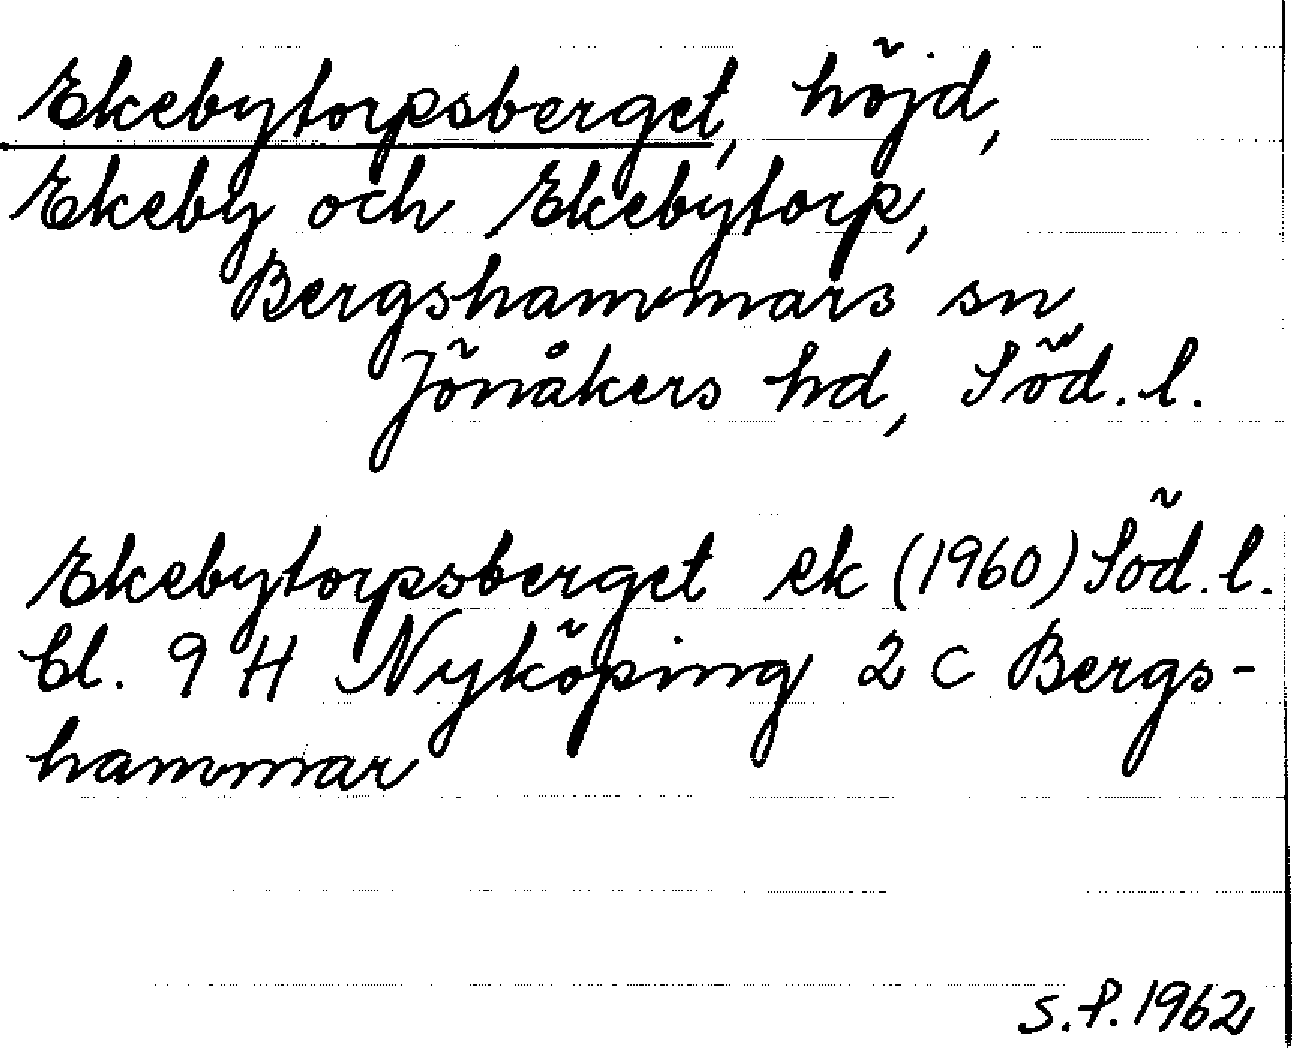 Ekebytorpsberget, höjd,
Ekeby och Ekebytorp,
Bergshammars sn
Jönåkers hd, Söd. l.
Ekebytorpsberget ek (1960) Söd. l.
bl. 9 H Nyköping 2 C Bergs-
hammar
S.P. 1962